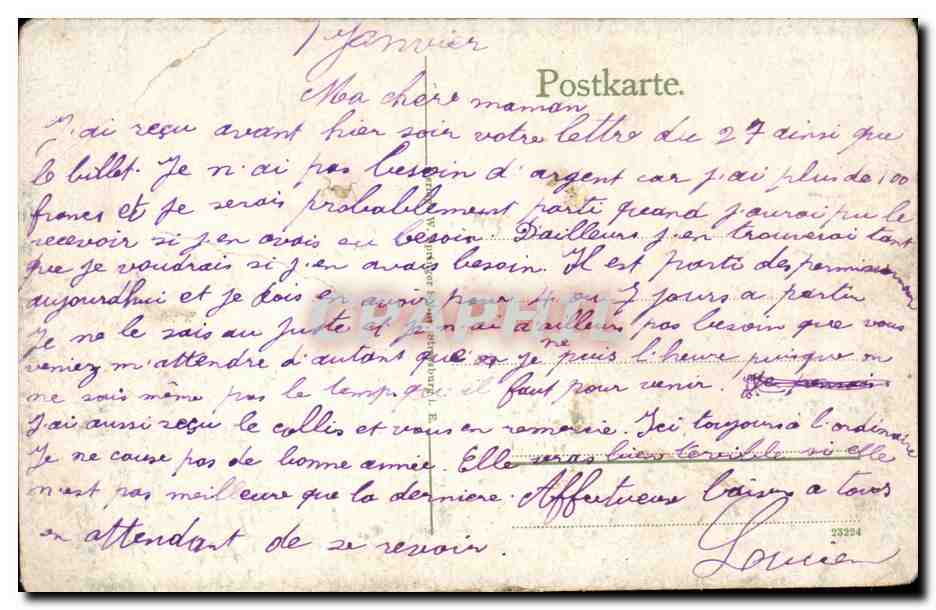 1 Janvier
Postkarte.
Ma chère maman
J'ai reçu avant hier soir votre lettre du 27 ainsi que
le billet. Je n'ai pas besoin d'argent car j'ai plus de 100
francs et je serais probablement parti quand j'aurai pu le
recevoir si j'en avais eu besoin. D'ailleurs j'en trouverai tant
que je voudrais si j'en avais besoin. Il est parti des
aujourdhui et je dois en pour 4 ou 7 jours a partir
Je ne le sais au juste et je n'ai d'ailleurs pas besoin que vous
veniez m'attendre d'autant que je ne puis l'heure puisque
ne sais même pas le temps qu'il faut pour venir.
J'ai aussi reçu le collis et vous en remercie. Ici toujours à l'ordinaire
Je ne cause pas de bonne année. Elle seras bien terrible si elle
n'est pas meilleure que la derniere. Affectueux baisers a tous
en attendant de se revoir.
Lucien
23224
CPAPHIL